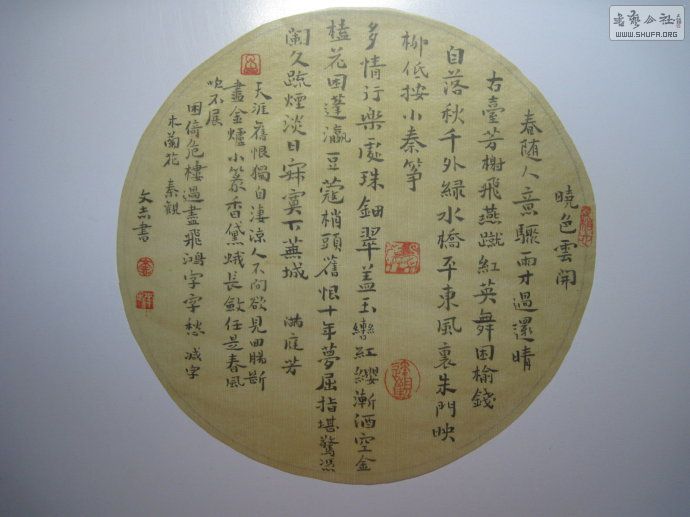 曉色雲開
春随人意驟雨才過還晴
古臺芳榭飛燕蹴紅英舞困榆錢
自落秋千外緑水橋平東風裏朱門映
柳低按小秦箏
多情行樂處珠鈿翠蓋玉轡紅纓漸酒空金
榼花困蓬瀛豆蔻梢頭舊恨十年夢屈指堪驚憑
闌久疏煙淡日寂寞下蕪城 满庭芳
天涯舊恨獨自淒涼人不問欲見回腸斷
盡金爐小篆香黛蛾長斂任是春風
吹不展
困倚危樓過盡飛鴻字字愁 减字
木蘭花 秦觀
文志書
WWW.SHUFA.ORG